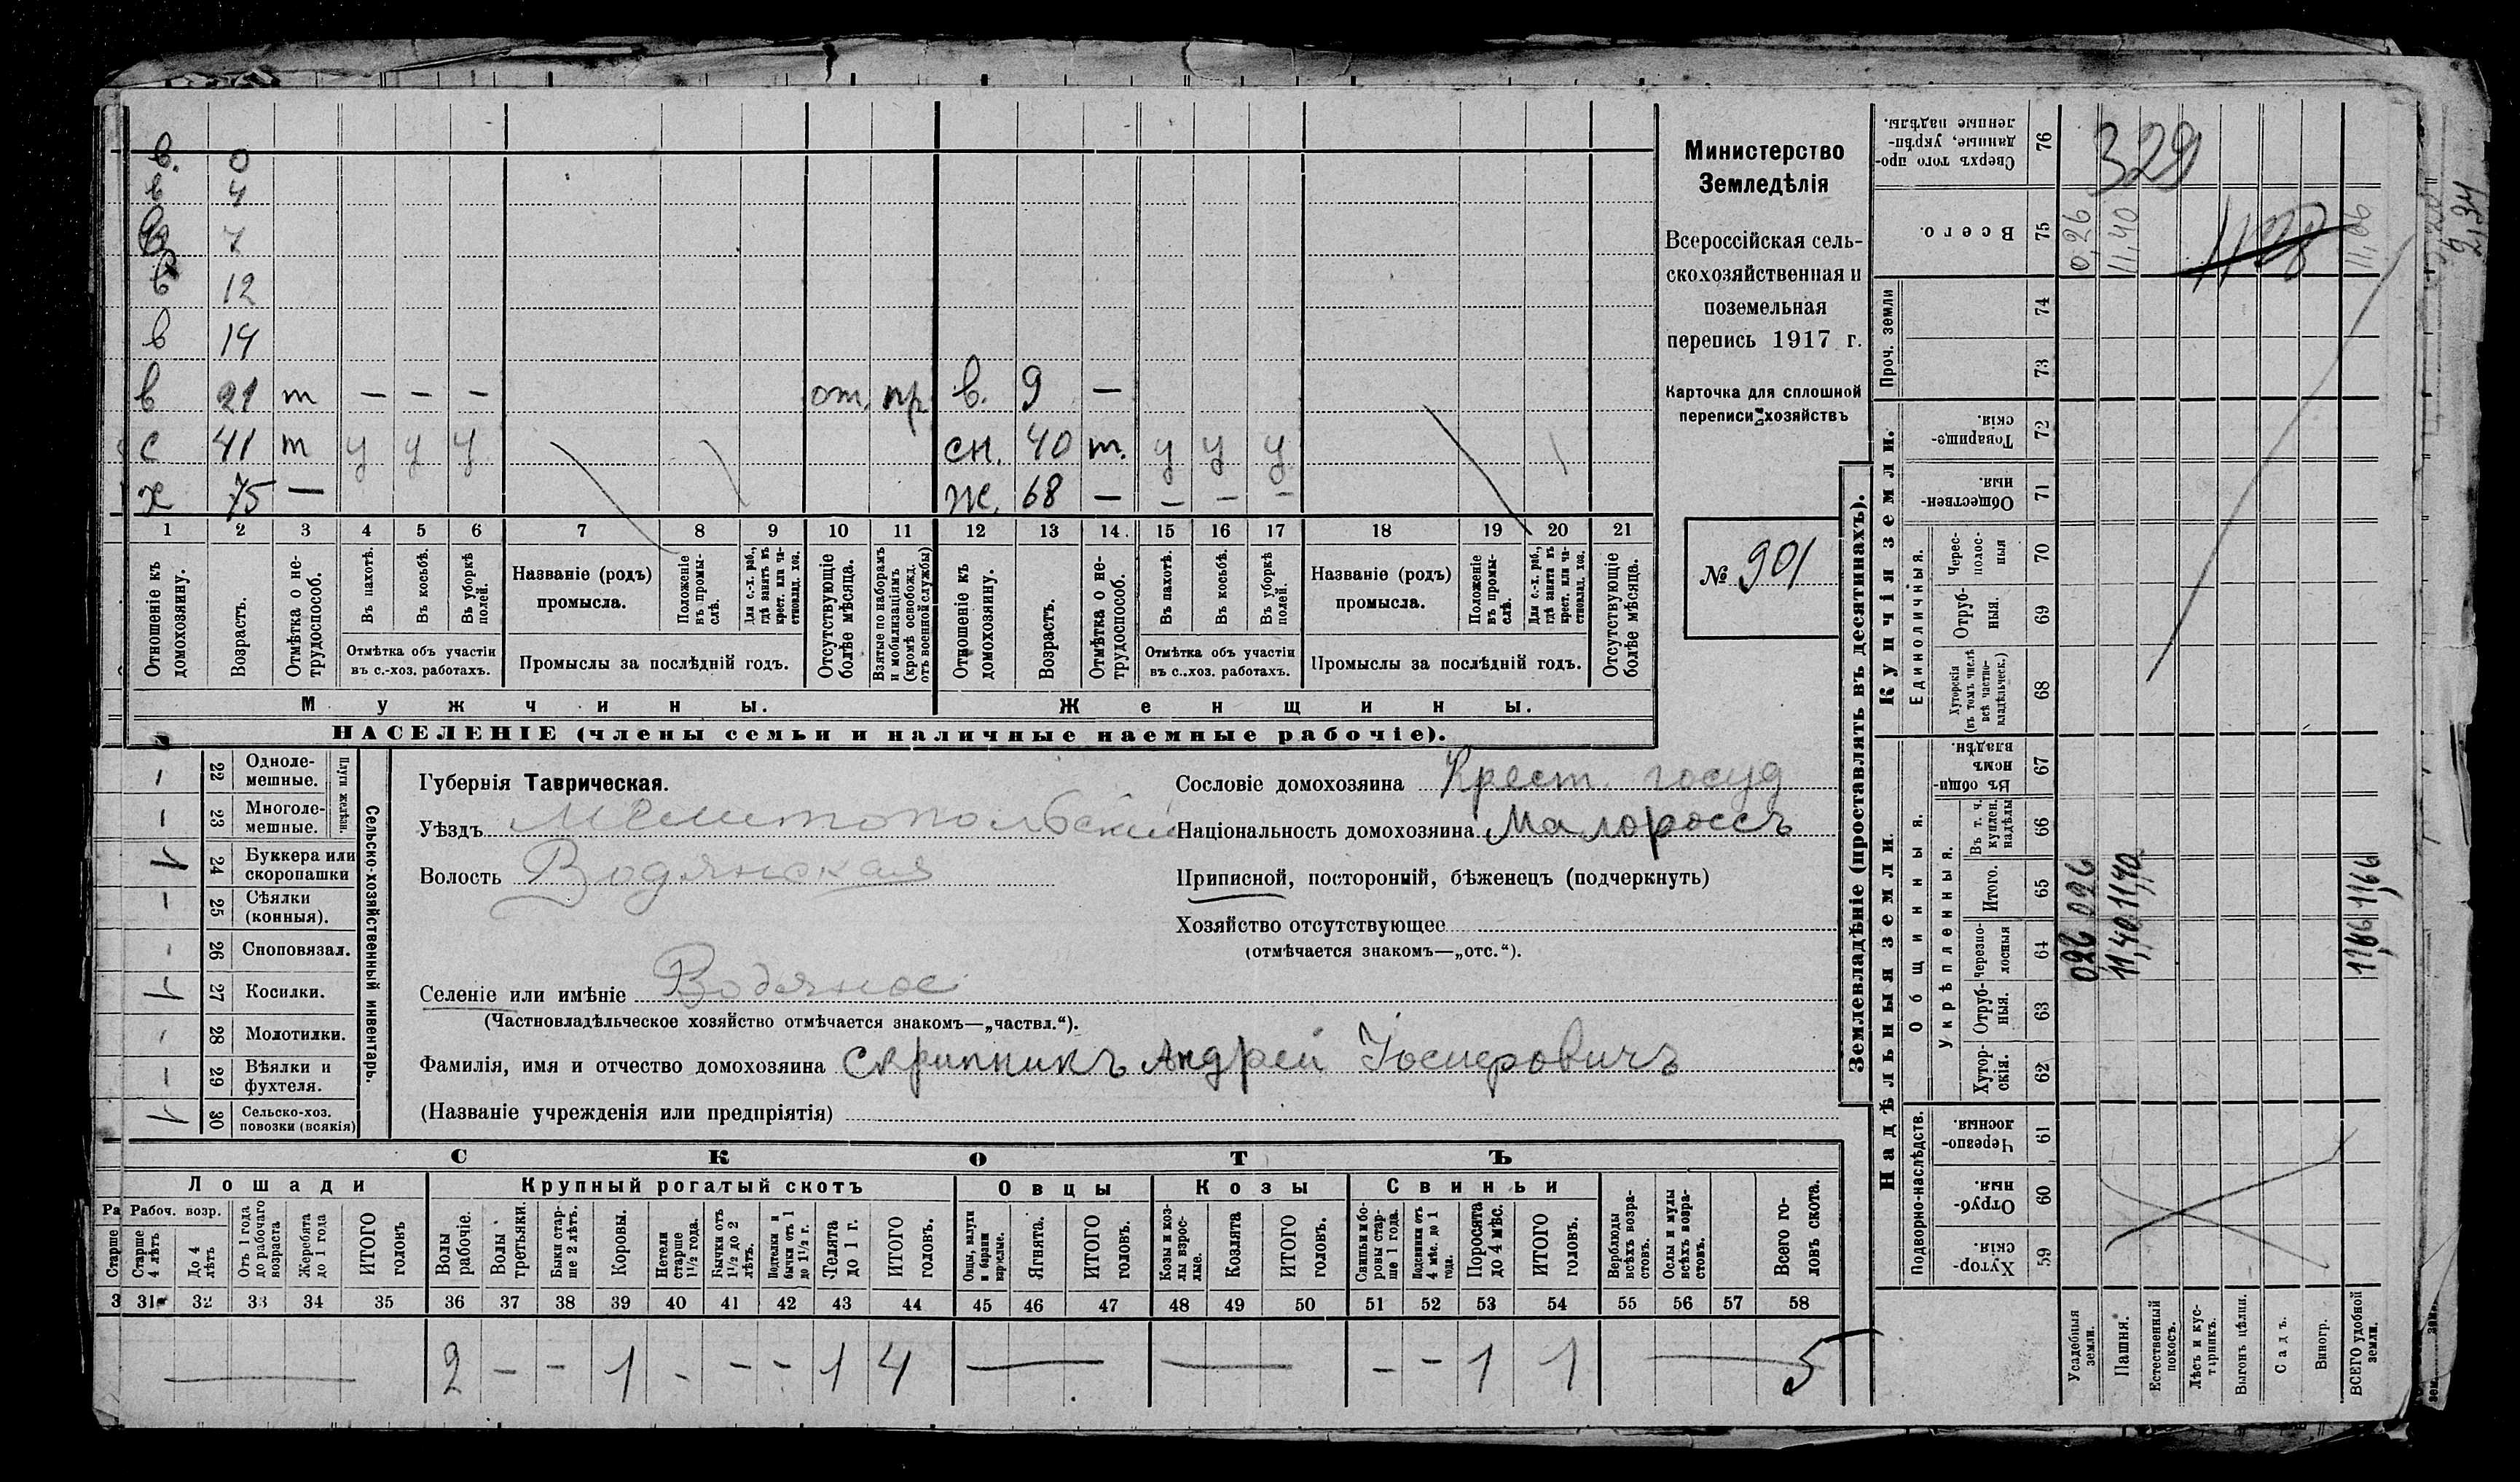 в. 0
в 4
в 7
в 12
в 14
в 21 т – – – от. пр в. 9 –
с 41 т у у у сн. 40 т. у у у
х 75 – ж. 68 – – – –
1 2 3 4 5 6 7 8 9 10 11 12 13 14. 15 16 17 18 19 20 21
Отношеніе къ домохозяину.
Возрастъ.
Отмѣтка о не-трудоспособ.
Въ пахотѣ.
Въ косьбѣ.
Въ уборкѣ полей.
Отмѣтка объ участіи въ с.-хоз. работахъ.
Названіе (родъ) промысла.
Положеніе въ промы-слѣ.
Для с.-х. раб., гдѣ занятъ въ крест. или ча-стновлад. хоз.
Промыслы за послѣдній годъ.
Отсутствующіе болѣе мѣсяца.
Взятые по наборамъ и мобилизаціямъ (кромѣ освобожд. отъ военной службы)
Отношеніе къ домохозяину.
Возрастъ.
Отмѣтка о не-трудоспособ.
Въ пахотѣ.
Въ косьбѣ.
Въ уборкѣ полей.
Отмѣтка объ участіи въ с..хоз. работахъ.
Названіе (родъ) промысла.
Положеніе въ промы-слѣ.
Для с.-х. раб., гдѣ занята въ крест. или ча-стновлад. хоз.
Промыслы за послѣдній годъ.
Отсутствующіе болѣе мѣсяца.
Мужчины. Женщины.
НАСЕЛЕНІЕ (члены семьи и наличные наемные рабочіе).
Министерство
Земледѣлія
Всероссійская сель-
скохозяйственная и
поземельная
перепись 1917 г.
Карточка для сплошной
переписи хозяйствъ
№ 901
– 22 Одноле-мешные.
– 23 Многоле-мешные.
Плуги желѣзн.
1 24 Буккера или скоропашки
– 25 Сѣялки (конныя).
- 26 Сноповязал.
1 27 Косилки.
- 28 Молотилки.
– 29 Вѣялки и фухтеля.
1 30 Сельско-хоз. повозки (всякія)
Сельско-хозяйственный инвентарь.
Губернія Таврическая.
Уѣздъ Мелитопольскій
Волость Водянская
Селеніе или имѣніе Водяное
(Частновладѣльческое хозяйство отмѣчается знакомъ—„частвл.“).
Фамилія, имя и отчество домохозяина Скрипникъ Андрей Іосиѳовичъ
(Названіе учрежденія или предпріятія)
Сословіе домохозяина Крест. госуд
Національность домохозяина Малороссъ
Приписной, посторонній, бѣженецъ (подчеркнуть)
Хозяйство отсутствующее
(отмѣчается знакомъ—„отс.“).
СКОТЪ
Лошади Крупный рогатый скотъ Овцы Козы Свиньи
Ра Рабоч. возр.
Старше
Старше 4 лѣтъ
До 4 лѣтъ
Отъ 1 года до рабочаго возраста
Жеребята до 1 года
ИТОГО головъ
Волы рабочіе.
Волы третьяки.
Быки стар-ше 2 лѣтъ.
Коровы.
Нетели старше 1½ года.
Бычки отъ 1½ до 2 лѣтъ.
Подтелки и бычки отъ 1 до 1½ г.
Телята до 1 г.
ИТОГО головъ.
Овцы, валухи и бараны взрослые.
Ягнята.
ИТОГО головъ.
Козы и коз-лы взрос-лые.
Козлята
ИТОГО головъ.
Свиньи и бо-ровы стар-ше 1 года.
Подсвинки отъ 4 мѣс. до 1 года.
Поросята до 4 мѣс.
ИТОГО головъ.
Верблюды всѣхъ возра-стовъ.
Ослы и мулы всѣхъ возра-стовъ.
Всего го-ловъ скота.
3 31 32 33 34 35 36 37 38 39 40 41 42 43 44 45 46 47 48 49 50 51 52 53 54 55 56 57 58
— 2 – – 1 - – – 1 4 — — – – 1 1 — 5
Землевладѣніе (проставлять въ десятинахъ).
Надѣльныя земли.
Купчія земли.
Проч. земли
Подворно-наслѣдств.
Общинныя.
Укрѣпленныя.
Единоличныя.
Сверхъ того про-данные, укрѣп-ленные надѣлы. 76
Всего. 75
74
73
Товарище-скія. 72
Обществен-ныя. 71
Черес-полос-ныя 70
Отруб-ныя. 69
Хуторскія (въ томъ числѣ всѣ частно-владѣльческ.) 68
Въ общи-номъ владѣн. 67
Въ т. ч. куплен. надѣлы 66
Итого. 65
Черезпо-лосныя 64
Отруб-ныя. 63
Хутор-скія. 62
Черезпо-лосныя. 61
Отруб-ныя. 60
Хутор-скія. 59
Усадебныя земли. 026 026 0,26
Пашня. 11,40 11,40 11,40
Естественный покосъ.
Лѣсъ и кус-тарникъ.
Выгонъ цѣлин.
Садъ.
Виногр.
ВСЕГО удобной земли. 11,66 11,66 11,66
329